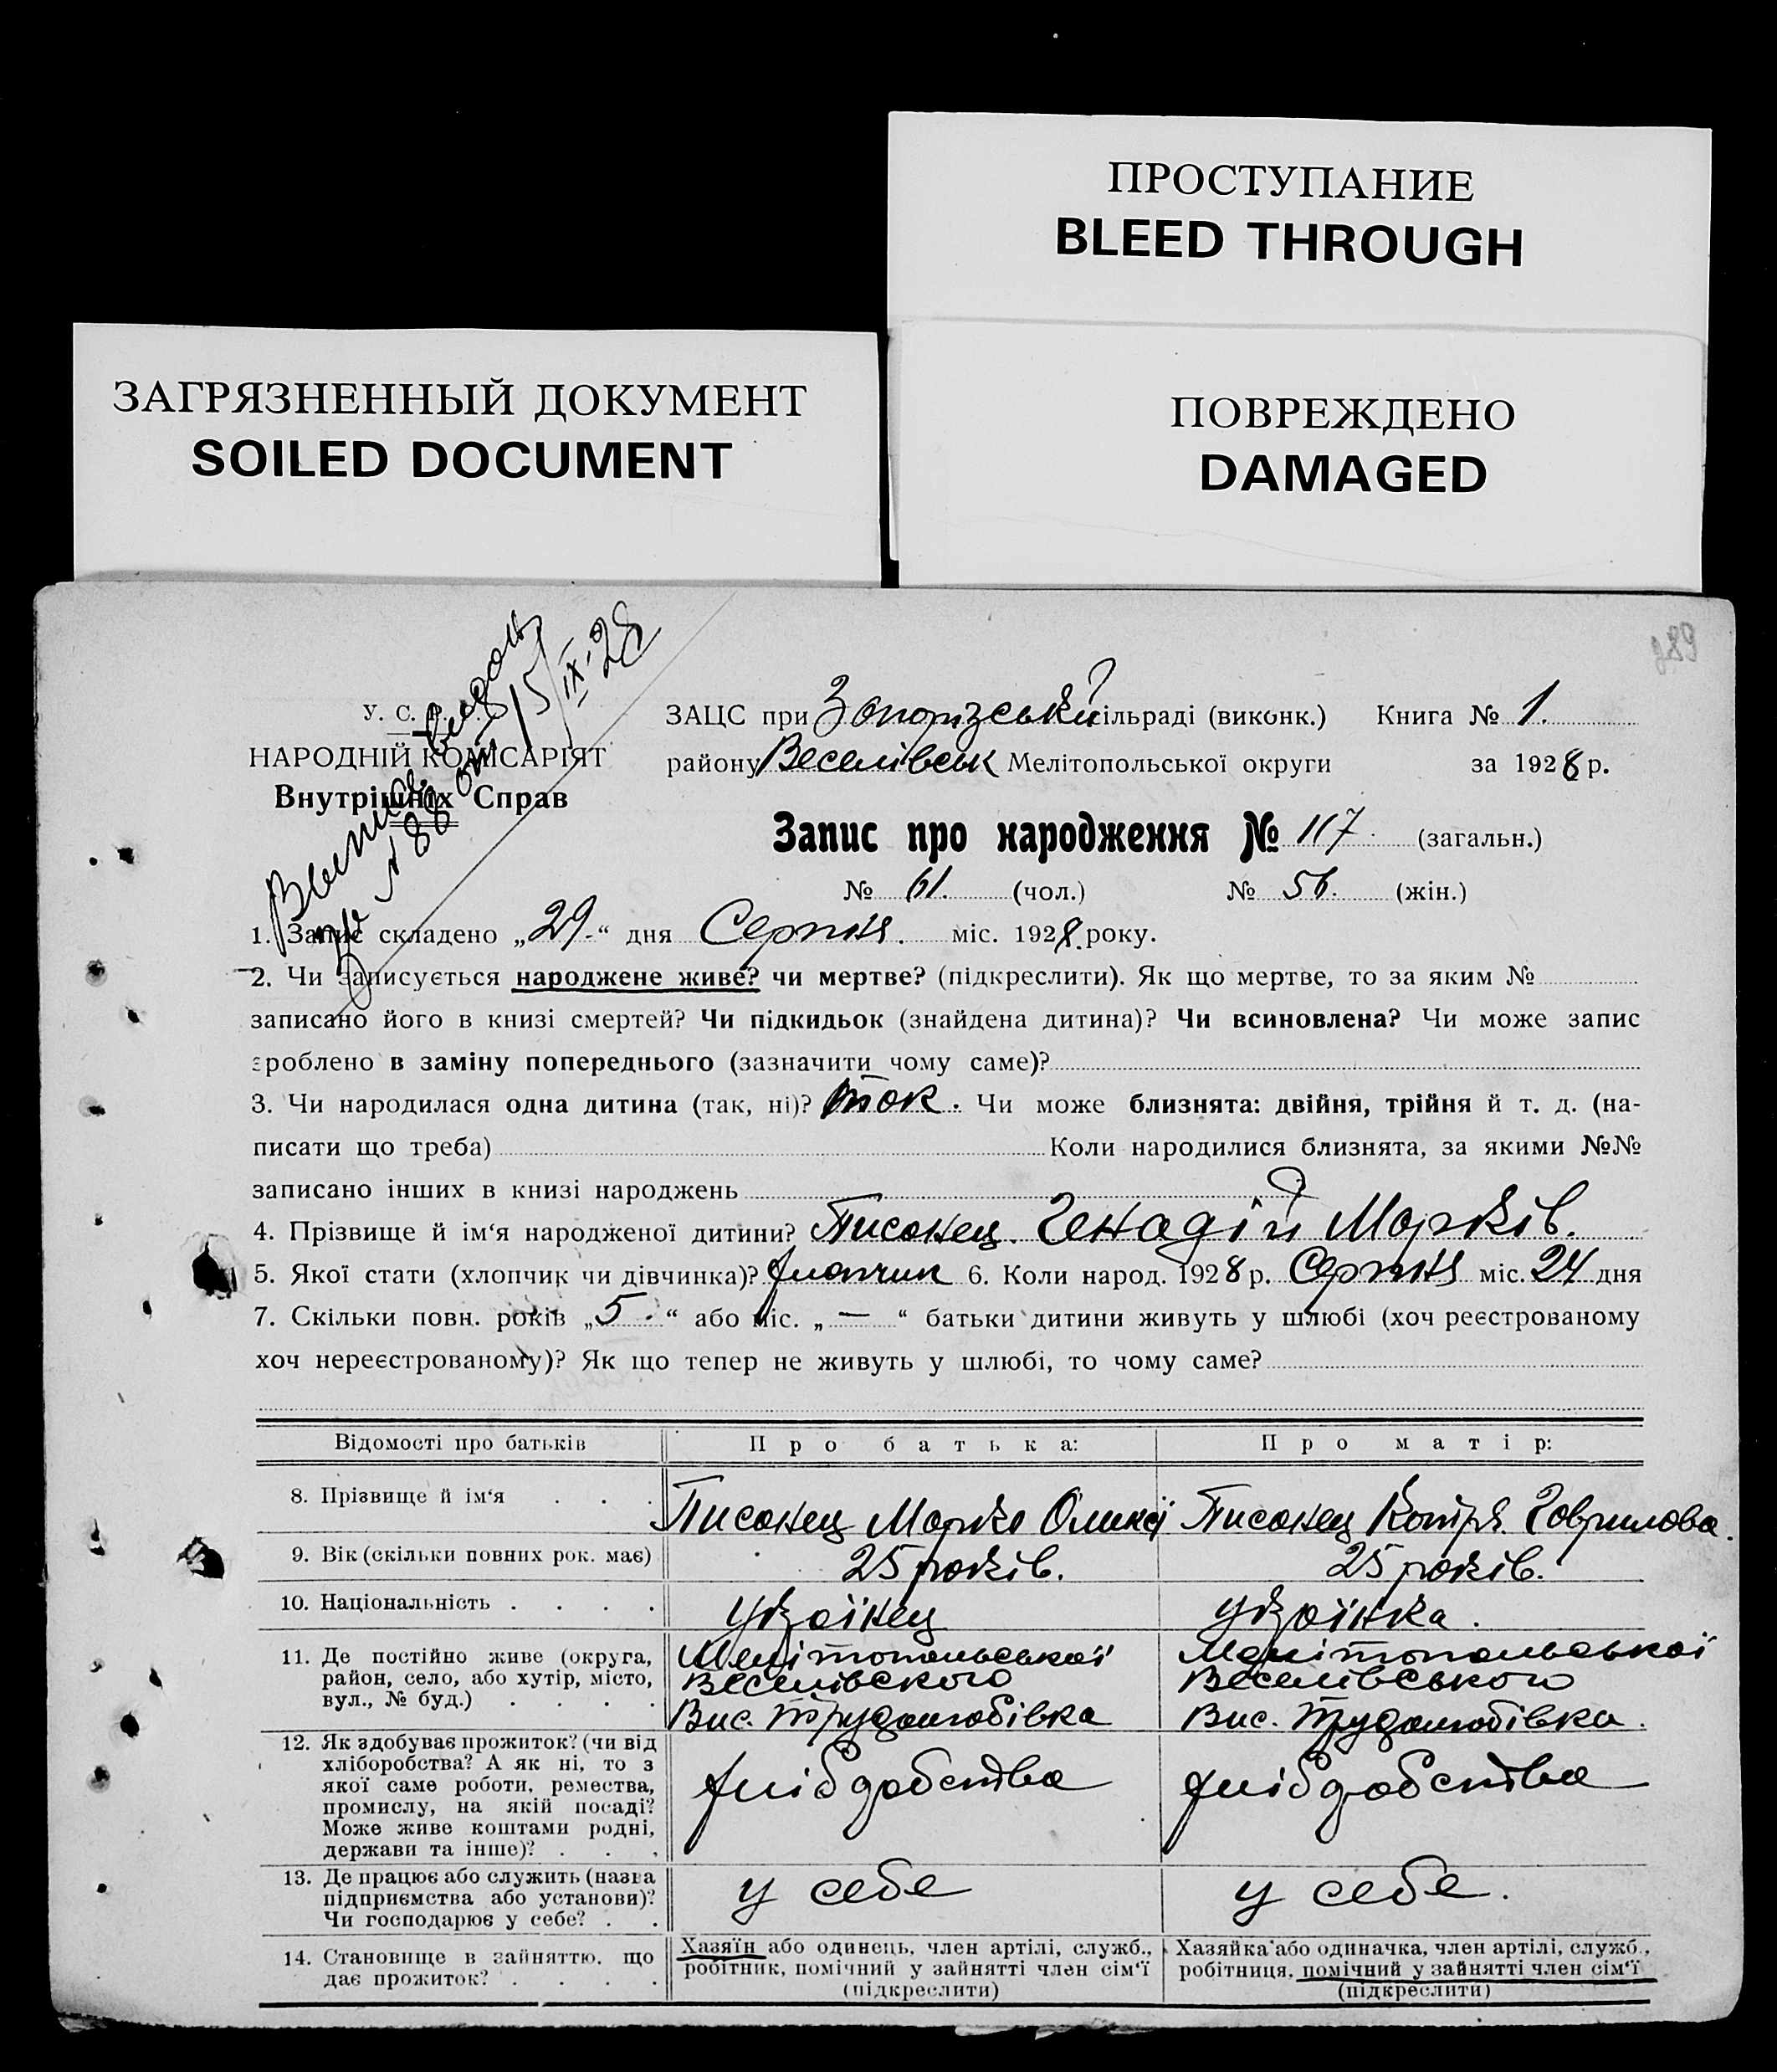 ПРОСТУПАНИЕ
BLEED THROUGH
ЗАГРЯЗНЕННЫЙ ДОКУМЕНТ
SOILED DOCUMENT
ПОВРЕЖДЕНО
DAMAGED
У. С.
НАРОДНІЙ КОМІСАРІЯТ
Внутрішніх Справ
№ 88 от 15/IX-28
ЗАЦС при Запорізській сільраді (виконк.) Книга № 1.
району Веселівськ Мелітопольської округи за 1928 р.
Запис про народження № 117. (загальн.)
№ 61. (чол.) № 56. (жін.)
1. Запис складено „29.“ дня Серпня. міс. 1928. року.
2. Чи записується народжене живе? чи мертве? (підкреслити). Як що мертве, то за яким №
записано його в книзі смертей? Чи підкидьок (знайдена дитина)? Чи всиновлена? Чи може запис
зроблено в заміну попереднього (зазначити чому саме)?
3. Чи народилася одна дитина (так, ні)? так. Чи може близнята: двійня, трійня й т. д. (на-
писати що треба) Коли народилися близнята, за якими №№
записано інших в книзі народжень
4. Прізвище й ім‘я народженої дитини? Писанец. Генадій Марків.
5. Якої стати (хлопчик чи дівчинка)? хлопчик 6. Коли народ. 1928 р. Серпня міс. 24 дня
7. Скільки повн. років „5.“ або міс. „—“ батьки дитини живуть у шлюбі (хоч реєстрованому
хоч нереєстрованому)? Як що тепер не живуть у шлюбі, то чому саме?
Відомості про батьків Про батька: Про матір:
8. Прізвище й ім‘я . . . Писанец Марко Олексі Писанец Катря Гаврилова.
9. Вік (скільки повних рок. має) 25 років. 25 років.
10. Національність . . . . українец українка.
11. Де постійно живе (округа, Мелітопольської Мелітопольської
район, село, або хутір, місто, Веселівского Веселівського
вул., № буд.) . . . . Вис. Трудолюбівка Вис. Трудолюбівка.
12. Як здобуває прожиток? (чи від
хліборобства? А як ні, то з
якої саме роботи, ремества, хлібдобства хлібдобства
промислу, на якій посаді?
Може живе коштами родні,
держави та інше)? . . .
13. Де працює або служить (назва
підприємства або установи)? у себе у себе.
Чи господарює у себе? . .
14. Становище в зайняттю, що Хазяїн або одинець, член артілі, служб., Хазяйка або одиначка, член артілі, служб.,
дає прожиток? . . . . робітник, помічний у зайнятті член сім‘ї робітниця, помічний у зайнятті член сім‘ї
(підкреслити) (підкреслити)